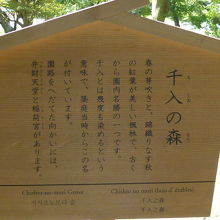 千入の森
ち しお もり
春の芽吹きと、錦織りなす秋
の紅葉が美しい楓林で、古く
から園内名勝の一つです。
千入とは幾度も染めるという
意味で、築庭当時からこの名
が付いています。
園路をへだてた向かいには、
弁財天堂と稲荷宮があります。
Chishio-no-mori Grove
지시오노모리 숲
Chishio no mori (bois d'érables)
千入之森
千入之森